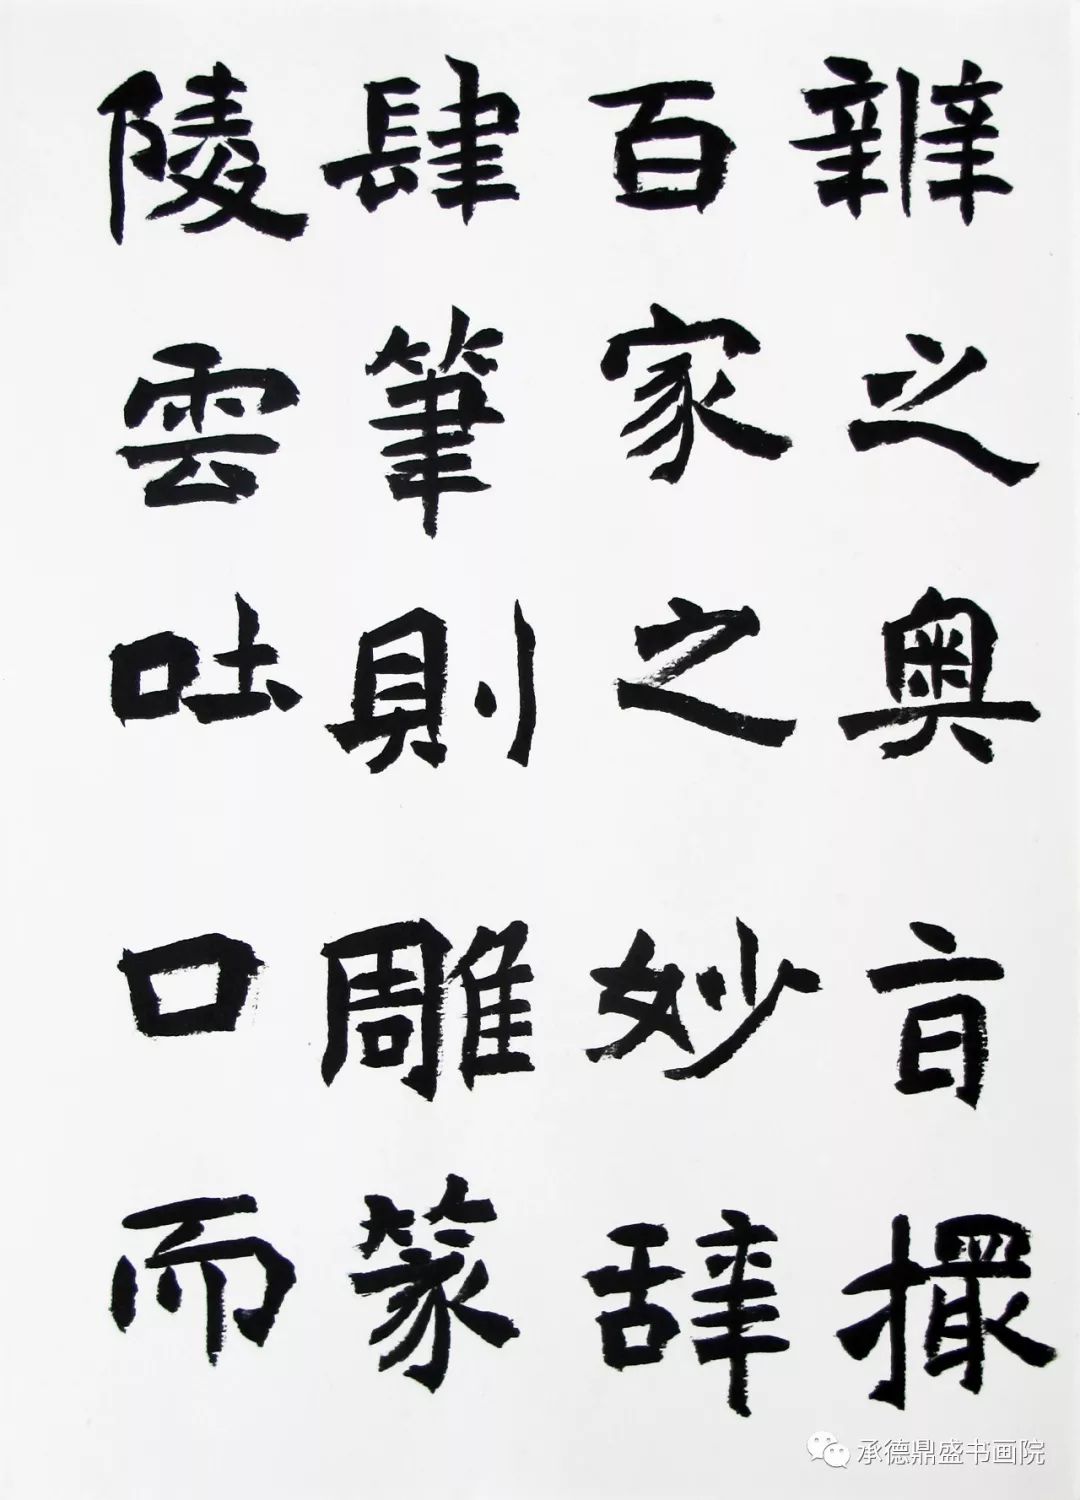 辨之奥旨撮
百家之妙辞
肆筆則雕篆
陵雲吐口而
承德鼎盛书画院